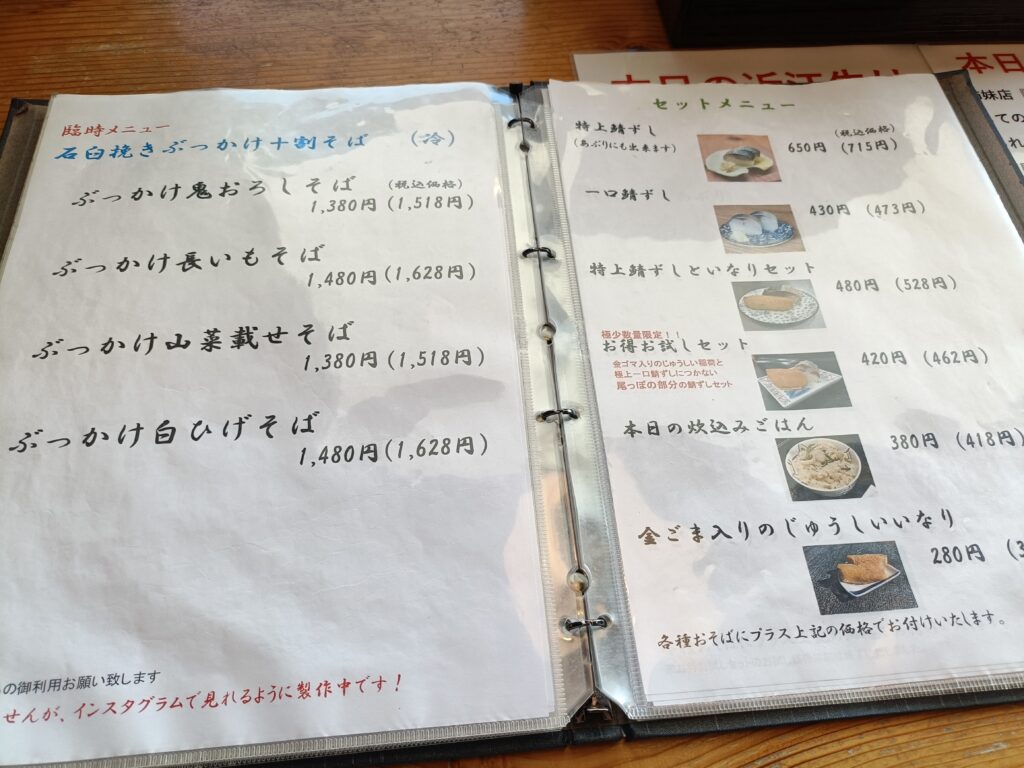 臨時メニュー
石臼挽きぶっかけ十割そば （冷）
ぶっかけ鬼おろしそば （税込価格）
1,380円（1,518円）
ぶっかけ長いもそば
1,480円（1,628円）
ぶっかけ山菜載せそば
1,380円（1,518円）
ぶっかけ白ひげそば
1,480円（1,628円）
の御利用お願い致します
せんが、インスタグラムで見れるように製作中です！
セットメニュー
特上鯖ずし （税込価格）
（あぶりにも出来ます） 650円（715円）
一口鯖ずし 430円（473円）
特上鯖ずしといなりセット 480円（528円）
極少数量限定！！
お得お試しセット 420円（462円）
金ゴマ入りのじゅうしい稲荷と
極上一口鯖ずしにつかない
尾っぽの部分の鯖ずしセット
本日の炊込みごはん 380円（418円）
金ごま入りのじゅうしいいなり
280円（3
各種おそばにプラス上記の価格でお付けいたします。
本日
妹店
ての
れ